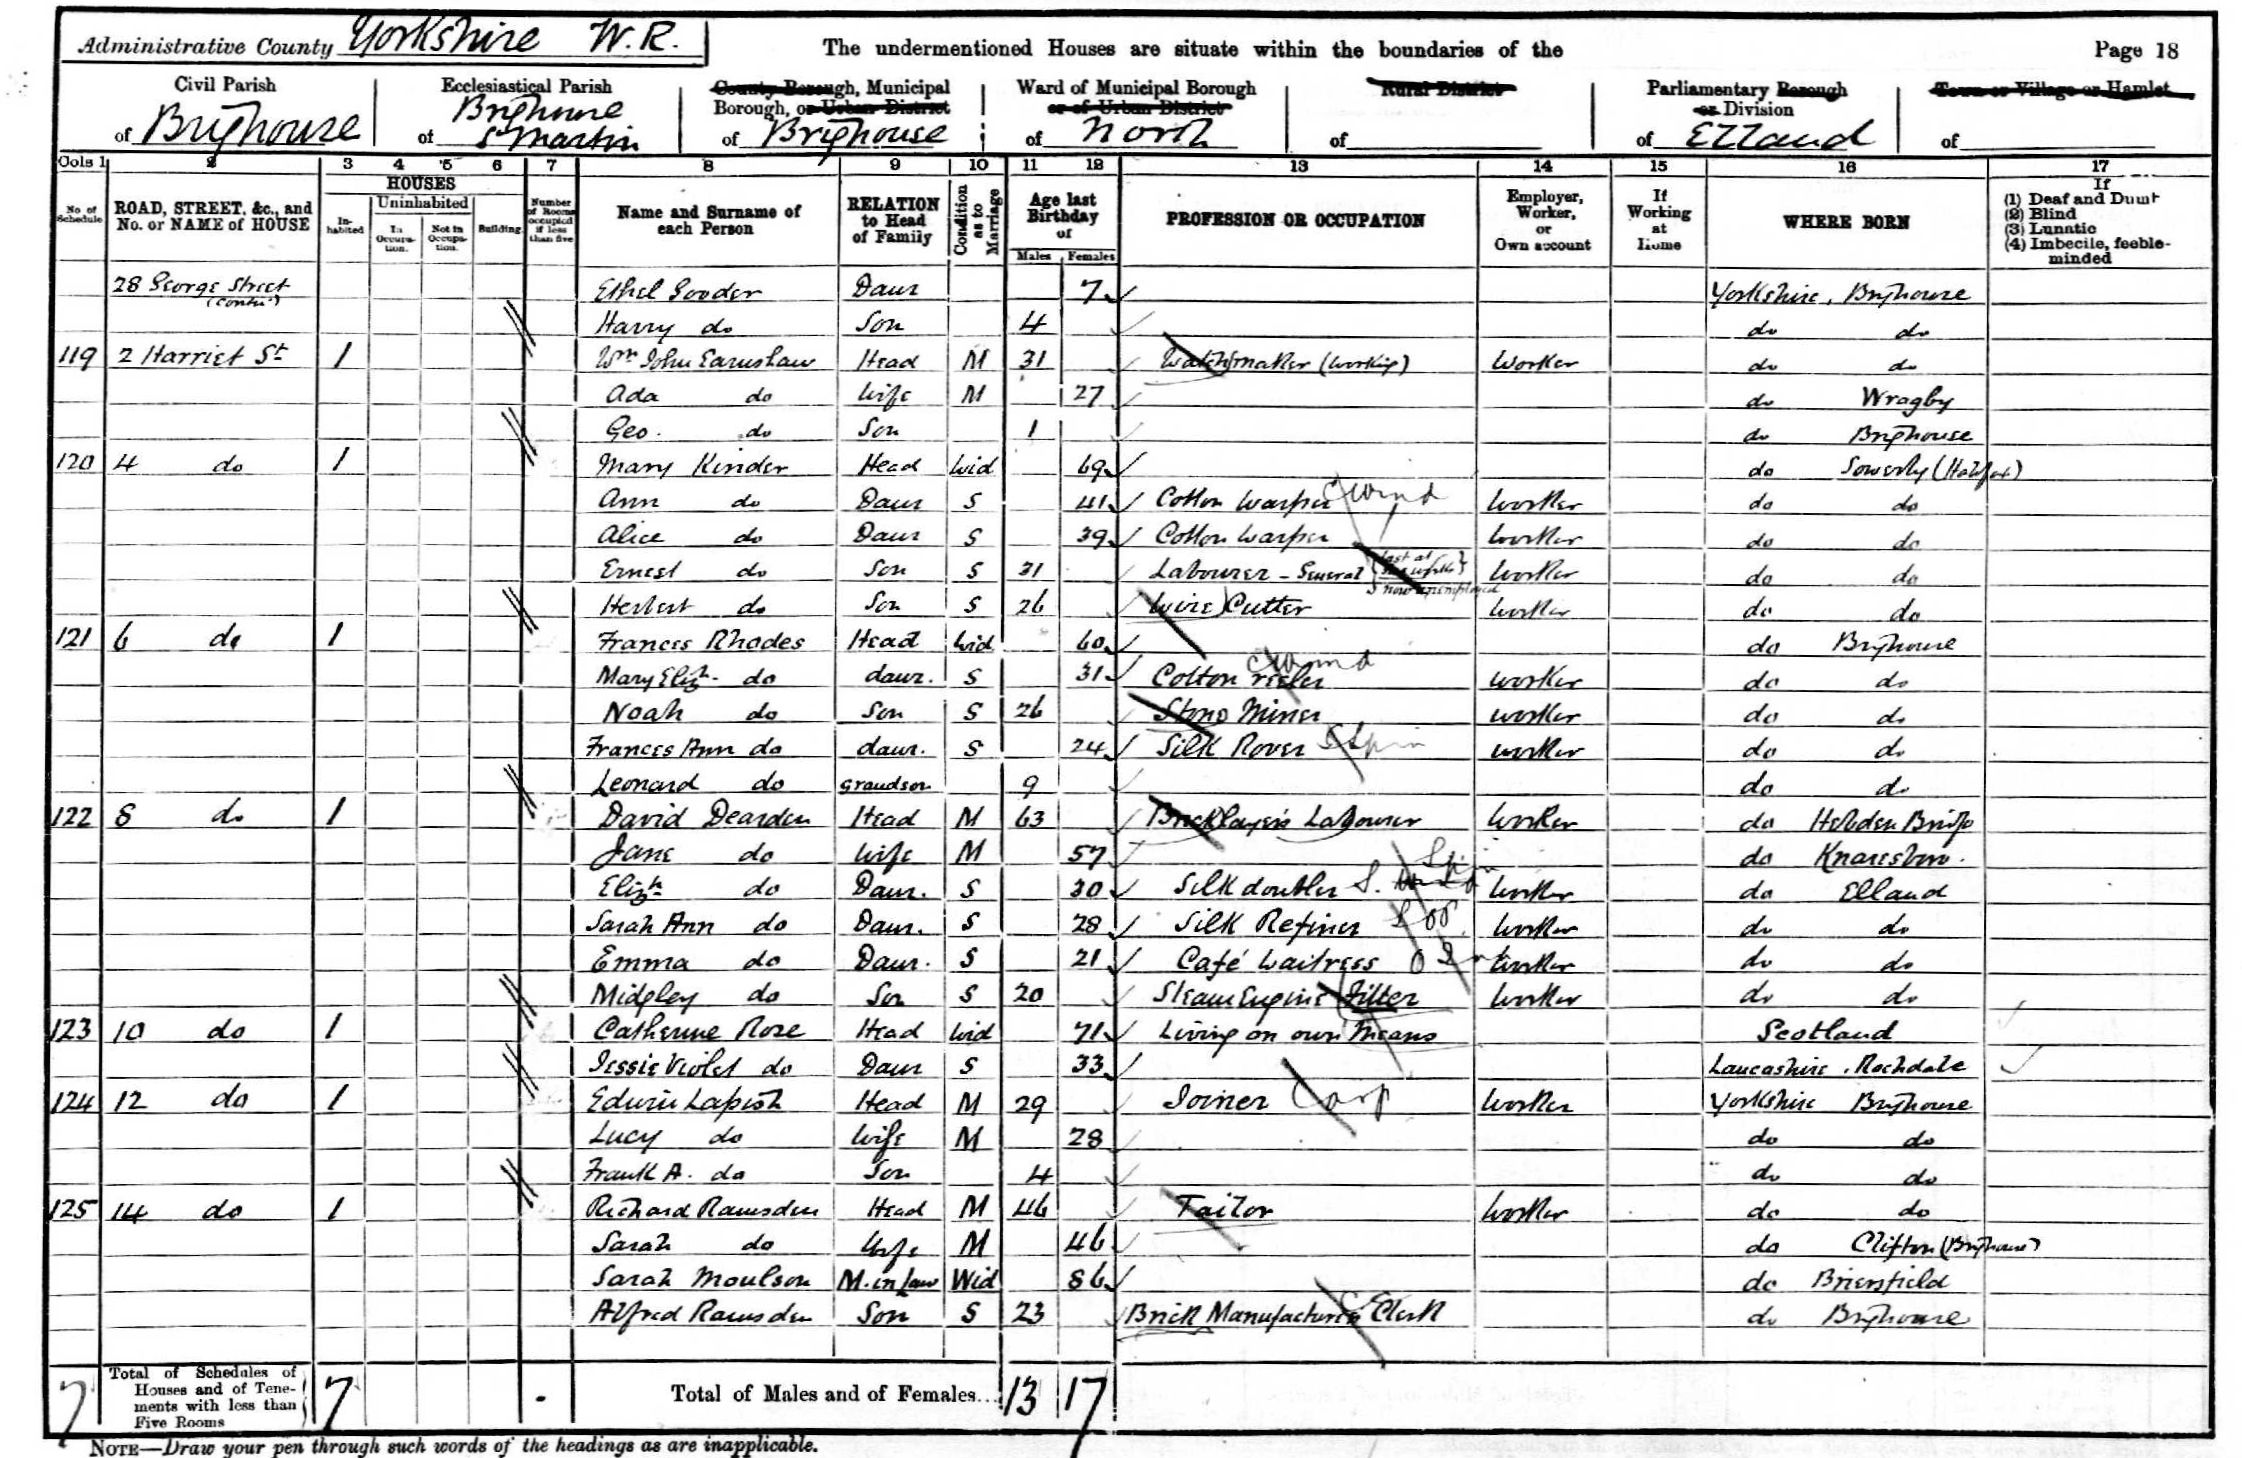 Administrative County Yorkshire W.R. The undermentioned Houses are situate within the boundaries of the Page 18
Civil Parish Ecclesiastical Parish County Borough, Municipal Ward of Municipal Borough Rural District Parliamentary Borough Town or Village or Hamlet
Borough, or Urban District or of Urban District or Division
of Brighouse of Brighouse St Martin of Brighouse of North of of Elland of
Cols 1 2 3 4 5 6 7 8 9 10 11 12 13 14 15 16 17
No of Schedule ROAD, STREET, &c., and No. or NAME of HOUSE HOUSES In-habited Uninhabited In Occupa-tion. Not in Occupa-tion. Building Number of Rooms occupied if less than five Name and Surname of each Person RELATION to Head of Family Condition as to Marriage Age last Birthday of Males Females PROFESSION OR OCCUPATION Employer, Worker, or Own account If Working at Home WHERE BORN If (1) Deaf and Dumb (2) Blind (3) Lunatic (4) Imbecile, feeble-minded
28 George Street (contd) Ethel Gooder Daur 7 Yorkshire, Brighouse
Harry do Son 4 do do
119 2 Harriet St 1 Wm John Earnshaw Head M 31 Watchmaker (working) Worker do do
Ada do Wife M 27 do Wragby
Geo. do Son 1 do Brighouse
120 4 do 1 Mary Kinder Head Wid 69 do Sowerby (Halifax)
Ann do Daur S 41 Cotton Warper C Wind Worker do do
Alice do Daur S 39 Cotton Warper Worker do do
Ernest do Son S 31 Labourer - General last at now unemployed Worker do do
Herbert do Son S 26 Wire Cutter Worker do do
121 6 do 1 Frances Rhodes Head Wid 60 do Brighouse
Mary Elizh. do daur. S 31 Cotton reeler C Wind worker do do
Noah do Son S 26 Stone Miner worker do do
Frances Ann do daur. S 24 Silk Rover S Spin worker do do
Leonard do grandson 9 do do
122 8 do 1 David Dearden Head M 63 Bricklayer's Labourer Worker do Hebden Bridge
Jane do Wife M 57 do Knaresboro.
Elizh do Daur. S 30 Silk doubler S. Spin Worker do Elland
Sarah Ann do Daur. S 28 Silk Refiner Worker do do
Emma do Daur. S 21 Café Waitress Worker do do
Midgley do Son S 20 Steam Engine Fitter Worker do do
123 10 do 1 Catherine Rose Head Wid 71 Living on own Means Scotland
Jessie Violet do Daur S 33 Lancashire, Rochdale
124 12 do 1 Edwin Lapish Head M 29 Joiner Carp Worker Yorkshire Brighouse
Lucy do Wife M 28 do do
Frank A. do Son 4 do do
125 14 do 1 Richard Ramsden Head M 46 Tailor Worker do do
Sarah do Wife M 46 do Clifton (Brighouse)
Sarah Moulson M. in law Wid 86 do Briersfield
Alfred Ramsden Son S 23 Brick Manufacturers Clerk do Brighouse
7 Total of Schedules of Houses and of Tene-ments with less than Five Rooms 7 - Total of Males and of Females... 13 17
NOTE—Draw your pen through such words of the headings as are inapplicable.